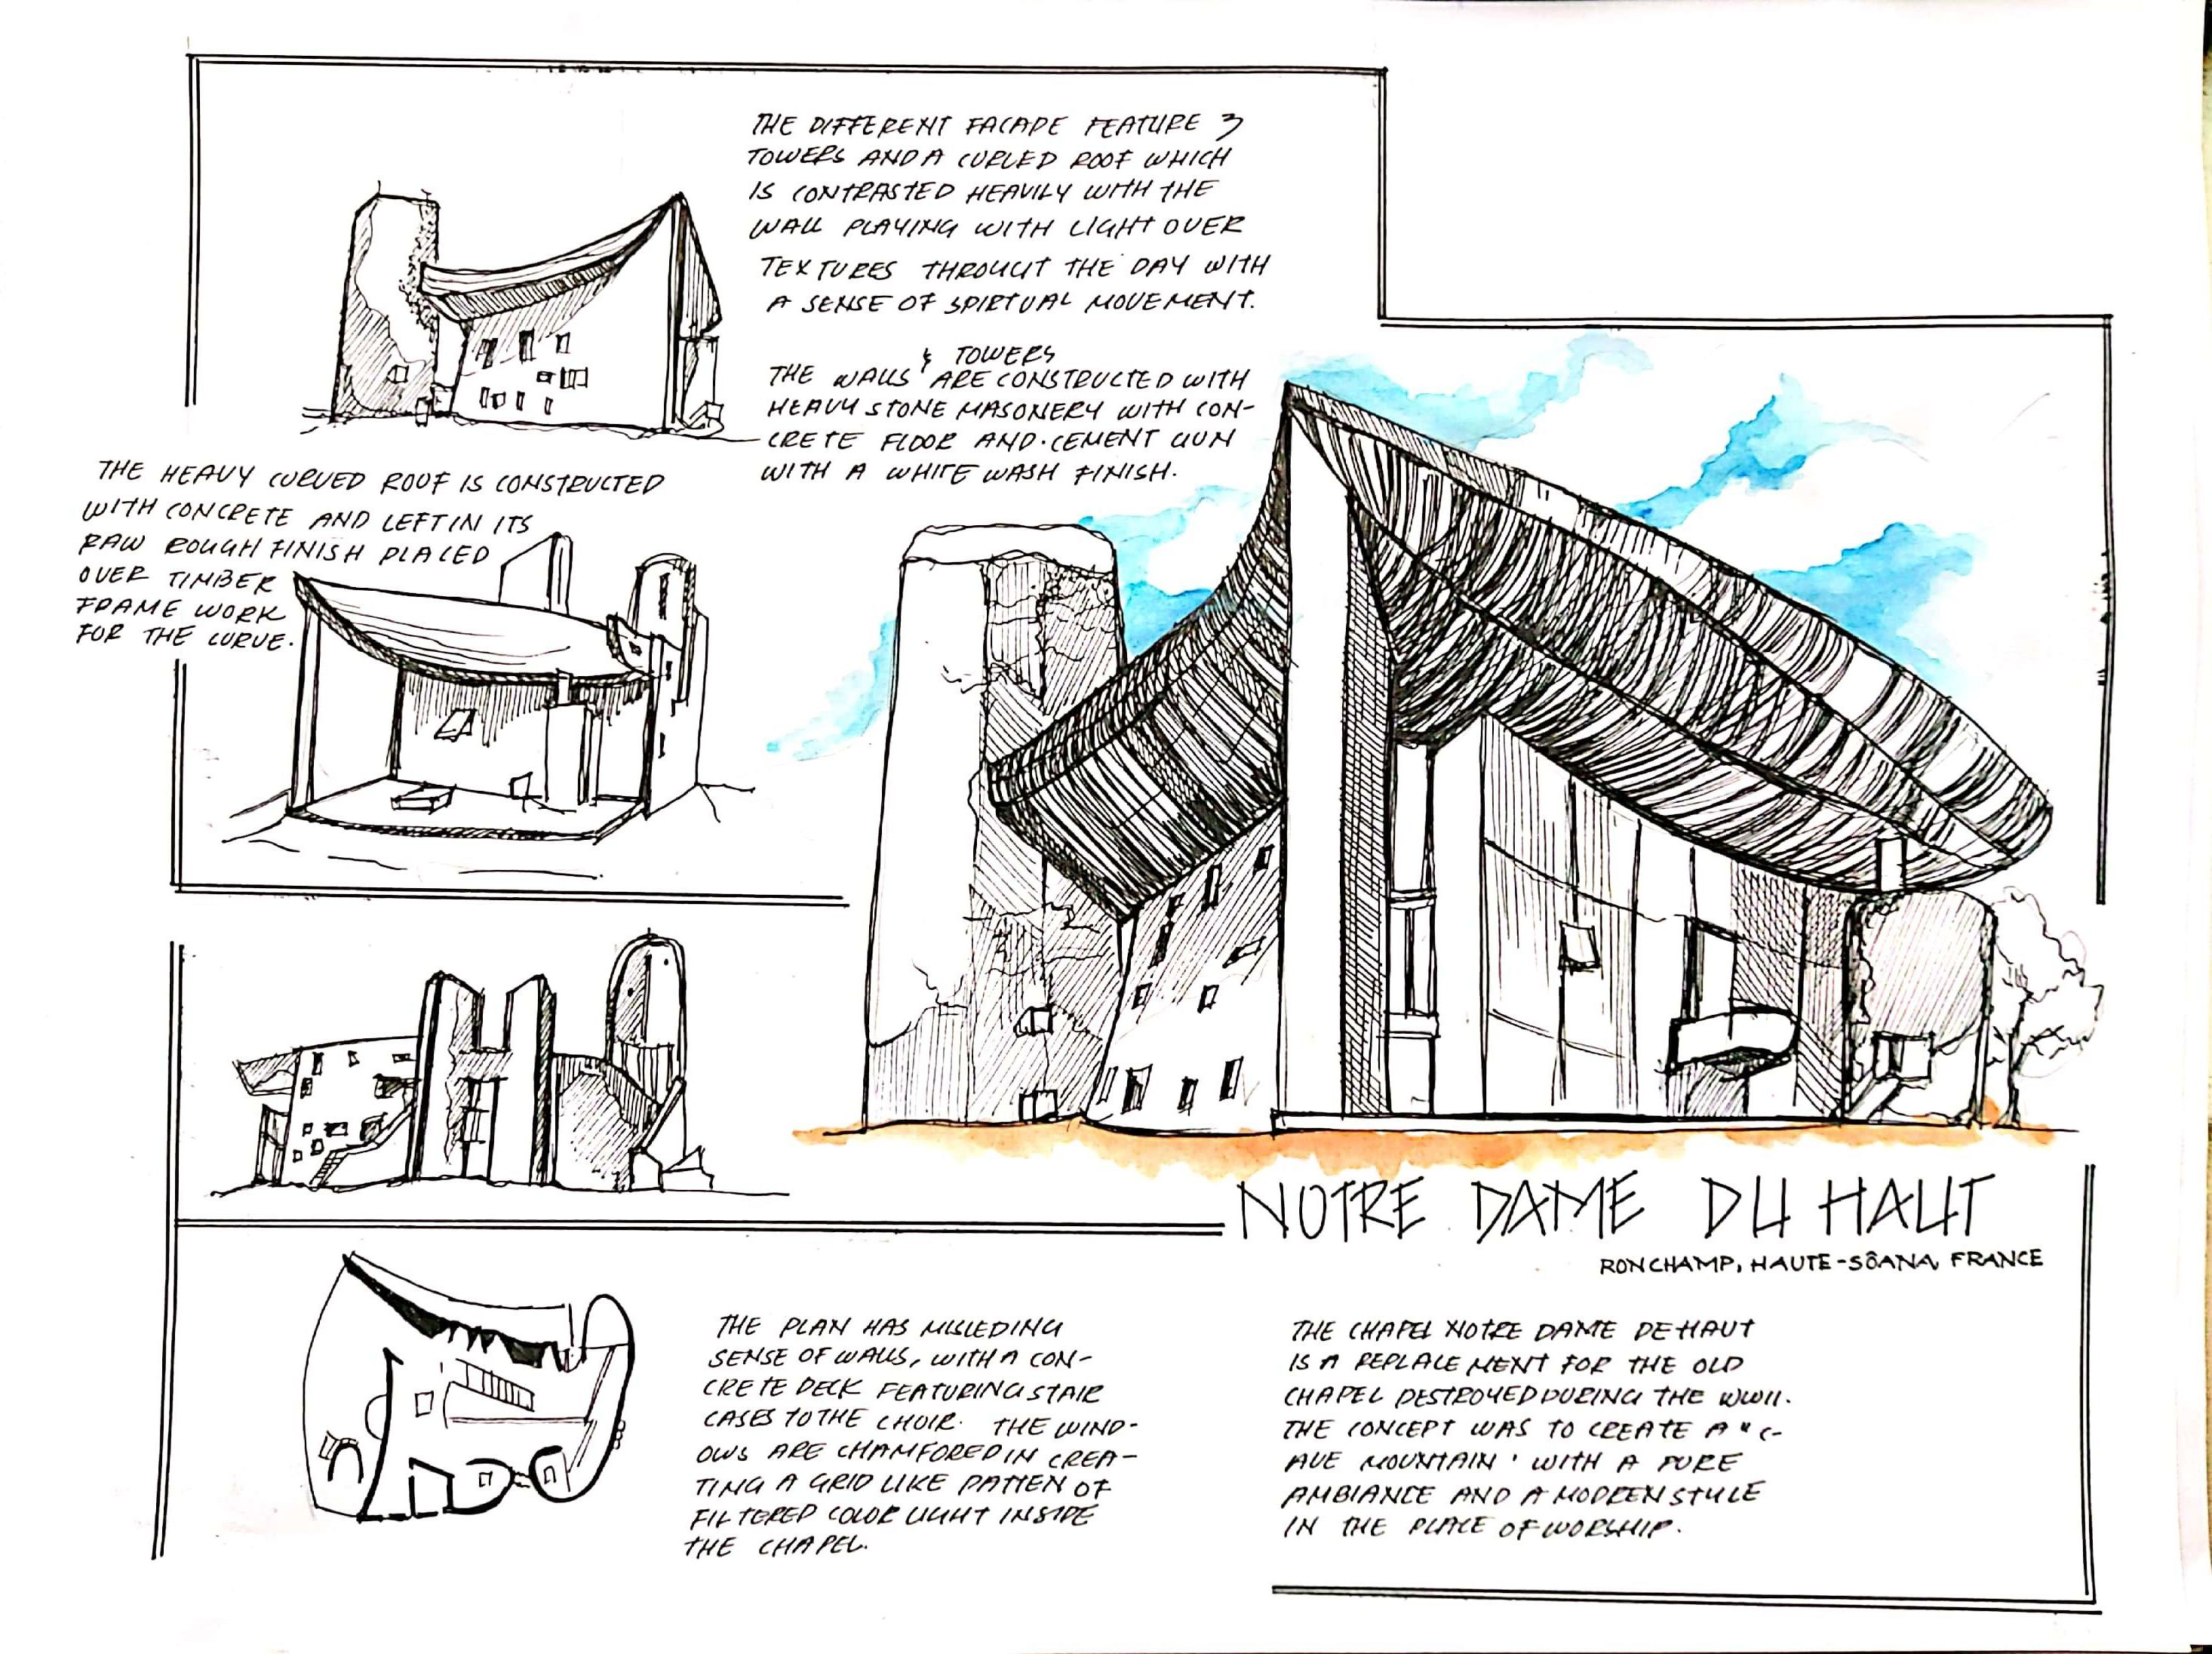 THE DIFFERENT FACADE FEATURE 3
TOWERS AND A CURLED ROOF WHICH
IS CONTRASTED HEAVILY WITH THE
WALL PLAYING WITH LIGHT OVER
TEXTURES THROUGT THE DAY WITH
A SENSE OF SPIRTUAL MOVEMENT.
& TOWERS
THE WALLS ARE CONSTRUCTED WITH
HEAVY STONE MASONERY WITH CON-
CRETE FLOOR AND CEMENT GUN
WITH A WHITE WASH FINISH.
THE HEAVY CURVED ROOF IS CONSTRUCTED
WITH CONCRETE AND LEFT IN ITS
RAW ROUGH FINISH PLACED
OVER TIMBER
FRAME WORK
FOR THE CURVE.
NOTRE DAME DU HAUT
RONCHAMP, HAUTE-SÔANA, FRANCE
THE PLAN HAS MISLEDING
SENSE OF WALLS, WITH A CON-
CRETE DECK FEATURING STAIR
CASES TO THE CHOIR. THE WIND-
OWS ARE CHAMFORED IN CREA-
TING A GRID LIKE PATTEN OF
FILTERED COLOR LIGHT INSIDE
THE CHAPEL.
THE CHAPEL NOTRE DAME DE HAUT
IS A REPLACEMENT FOR THE OLD
CHAPEL DESTROYED DURING THE WWII.
THE CONCEPT WAS TO CREATE A "C-
AVE MOUNTAIN' WITH A PURE
AMBIANCE AND A MODREN STYLE
IN THE PLACE OF WORSHIP.